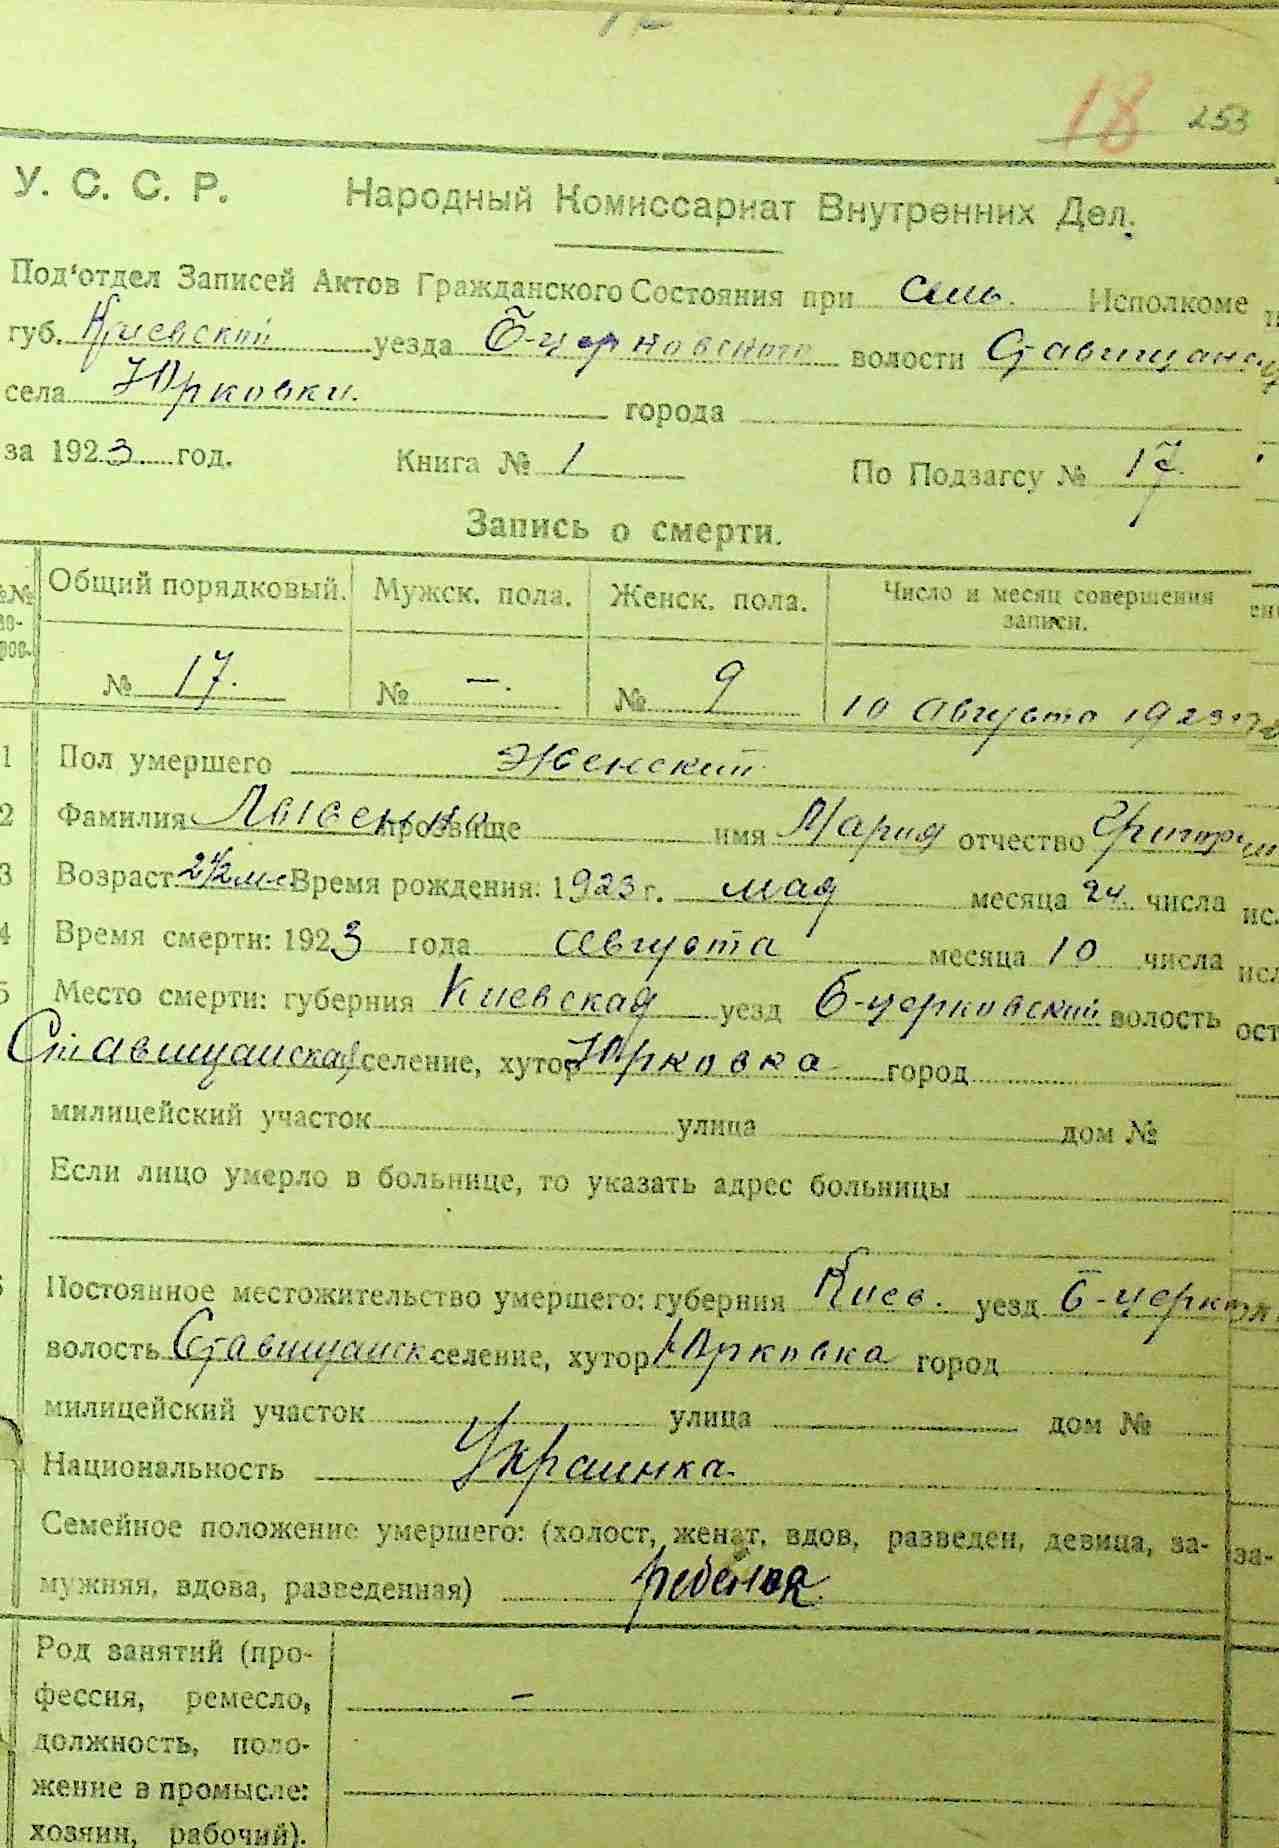 18 253
У. С. С. Р. Народный Комиссариат Внутренних Дел.
Под'отдел Записей Актов Гражданского Состояния при Сель. Исполкоме
губ. Киевской уезда Б-церковского волости Ставищанск
села Юрковки. города
за 1923 год. Книга № 1 По Подзагсу № 17
Запись о смерти.
Общий порядковый. Мужск. пола. Женск. пола. Число и месяц совершения
записи.
№ 17. № —. № 9 10 Августа 1923
1 Пол умершего Женский
2 Фамилия Лысенко прозвище имя Мария отчество
3 Возраст 2½ мес Время рождения: 1923 г. мая месяца 24 числа
4 Время смерти: 1923 года августа месяца 10 числа
5 Место смерти: губерния Киевская уезд Б-церковский волость
Ставищанская селение, хутор Юрковка город
милицейский участок улица дом №
Если лицо умерло в больнице, то указать адрес больницы
Постоянное местожительство умершего: губерния Киев. уезд Б-церков
волость Ставищанск селение, хутор Юрковка город
милицейский участок улица дом №
Национальность Украинка.
Семейное положение умершего: (холост, женат, вдов, разведен, девица, за-
мужняя, вдова, разведенная) ребенок
Род занятий (про-
фессия, ремесло, —
должность, поло-
жение в промысле:
хозяин, рабочий).